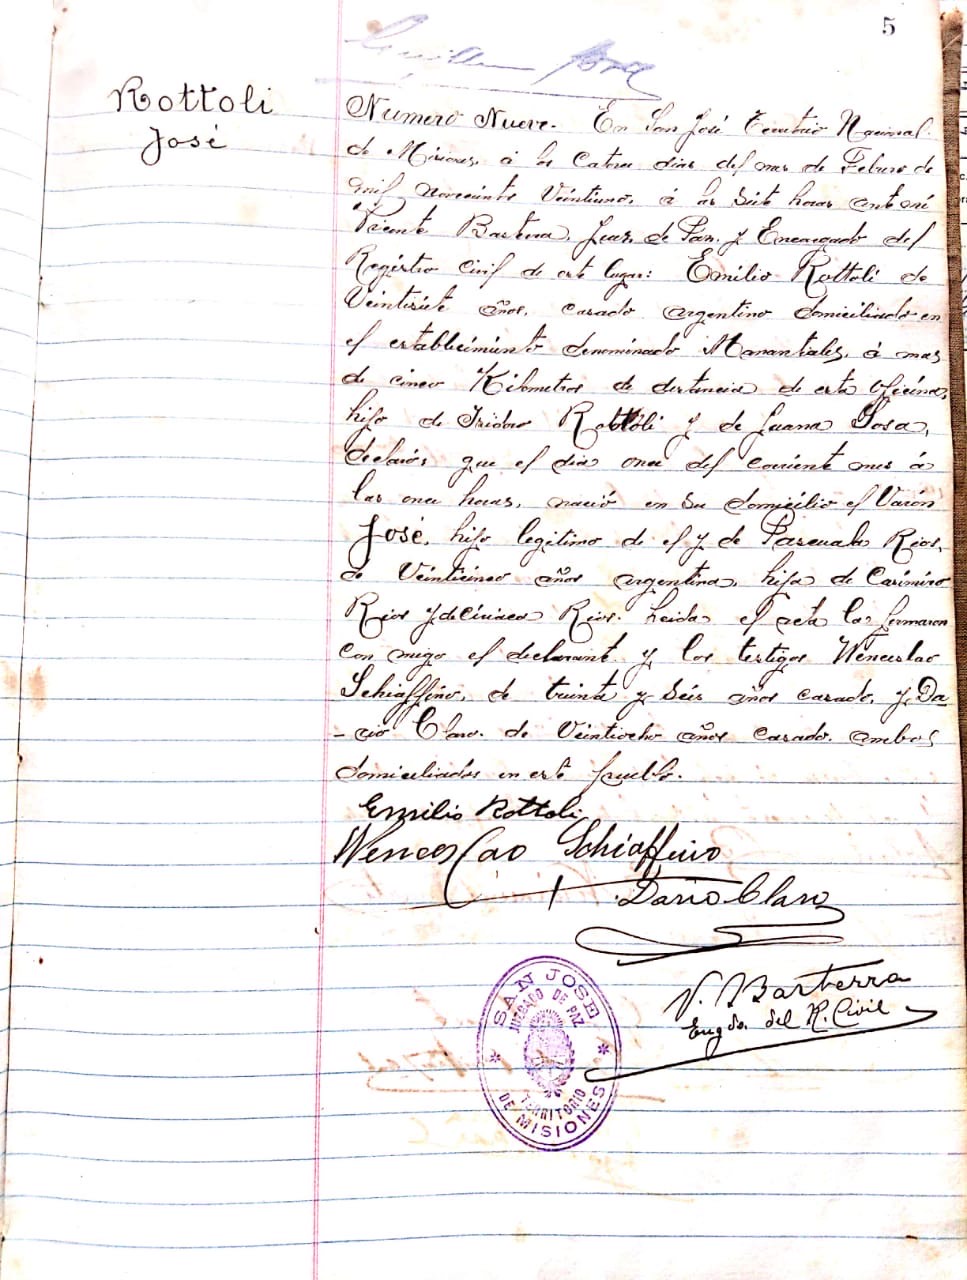 5
Rottoli
José
Numero Nueve. En San José Territorio Nacional
de Misiones, á los Catorce dias del mes de Febrero de
mil novecientos Veintiuno, á las Siete horas ante mi
Vicente Basterra, Juez de Paz y Encargado del
Registro Civil de este lugar: Emilio Rottoli de
Veintisiete años, casado argentino domiciliado en
el establecimiento denominado Manantiales, á mas
de cinco Kilometros de distancia de esta oficina,
hijo de Isidoro Rottoli y de Juana Sosa,
declaró; que el dia once del corriente mes á
las once horas, nació en su domicilio el Varón
José, hijo legitimo de el y de Pascuala Rios,
de Veinticinco años argentina, hija de Casimiro
Rios y de Ciriaca Rios. Leida el acta la firmaron
con migo el declarante y los testigos Wenceslao
Schiaffino, de treinta y Seis años casado, y Da
-rio Claro. de Veintiocho años casado. ambos
domiciliados en este pueblo.
Emilio Rottoli
Wenceslao Schiaffino
Dario Claro
V. Basterra
Engdo. del R. Civil
SAN JOSE
JUZGADO DE PAZ
TERRITORIO
DE MISIONES